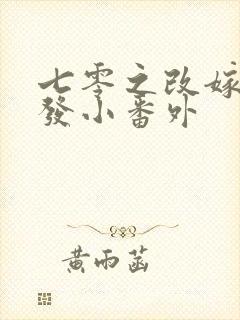 七零之改嫁
發小番外
黃雨菡